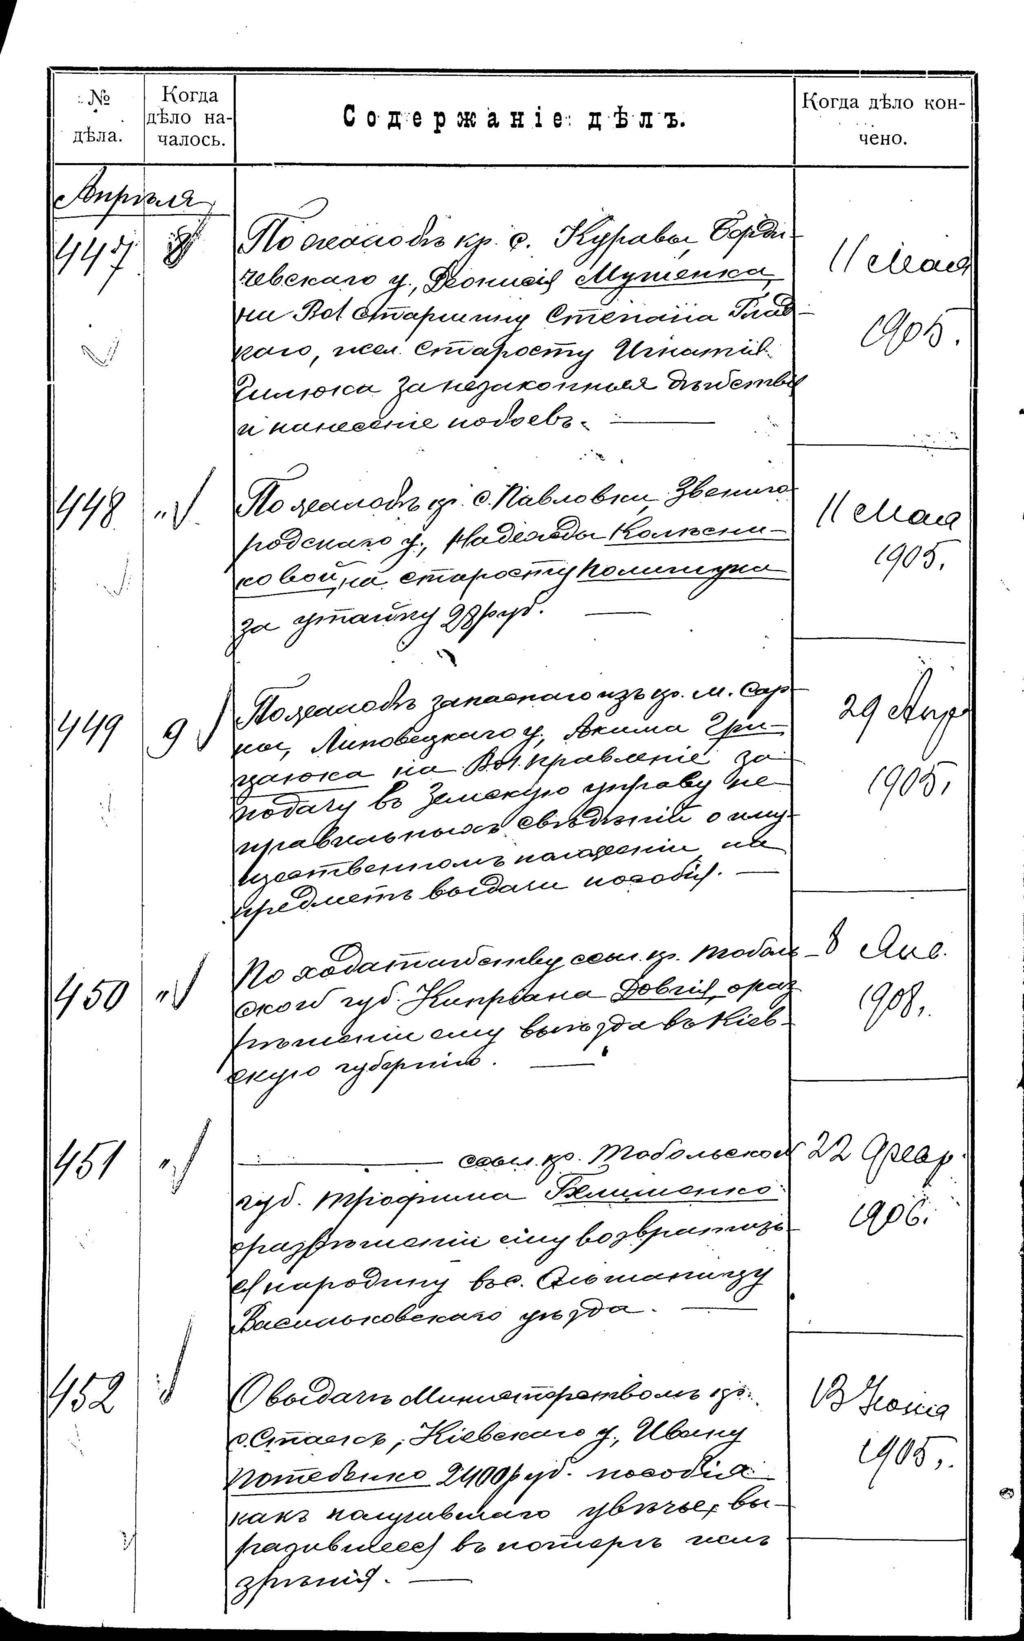 № дѣла.
Когда дѣло на-
чалось.
Содержаніе дѣлъ.
Когда дѣло кон-
чено.
Апрѣля
447 8
По жалобѣ кр. с. Журавы, Берди-
чевскаго у., Діонисія Мушенка,
на Вол старшину Степана Глад-
каго, и сел. старосту Игнатія
за незаконныя дѣйствія
и нанесеніе побоевъ. —
11 Мая
1905.
448 "
По жалобѣ кр. с. Павловки, Звениго-
родскаго у., Надежды Колѣсни-
ковой, на старосту Полищука
за утайку 28 руб. —
11 Мая
1905.
449 9
По жалобѣ запаснаго изъ кр. м. Сар-
ны, Липовецкаго у., Акима Гри-
цаюка на Вол. правленіе за
подачу въ Земскую управу не-
правильныхъ свѣдѣній о иму-
щественномъ положеніи, на
предметъ выдачи пособія. —
29 Апр.
1905.
450 "
По ходатайству ссыл. кр. Тоболь-
ской губ. Кипріана Довгія, о раз
рѣшеніи ему выѣзда въ Кіев-
скую губернію. —
8 Янв.
1908.
451 "
— ссыл. кр. Тобольской
губ. Трофима
о разрѣшеніи ему возвратить-
ся на родину въ с. Ольшаницу
Васильковскаго уѣзда. —
22 Февр.
1906.
452 "
О выдачѣ Министерствомъ кр.
с. Стаекъ, Кіевскаго у., Ивану
Потебенко 2400 руб. пособія
какъ получившаго увѣчье, вы-
разившееся въ потерѣ имъ
зрѣнія. —
13 Іюня
1905.